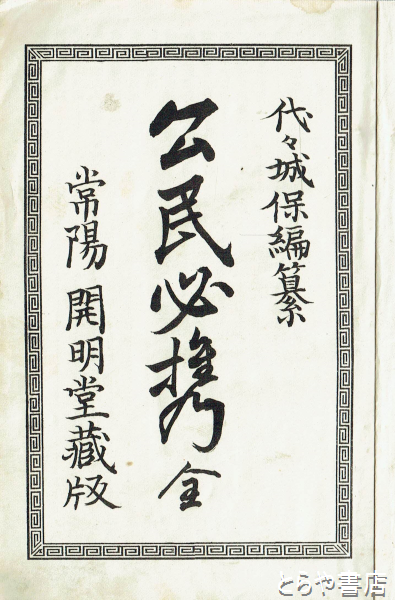 代々城保編纂
公民必携 全
常陽 開明堂藏版
とらや書店